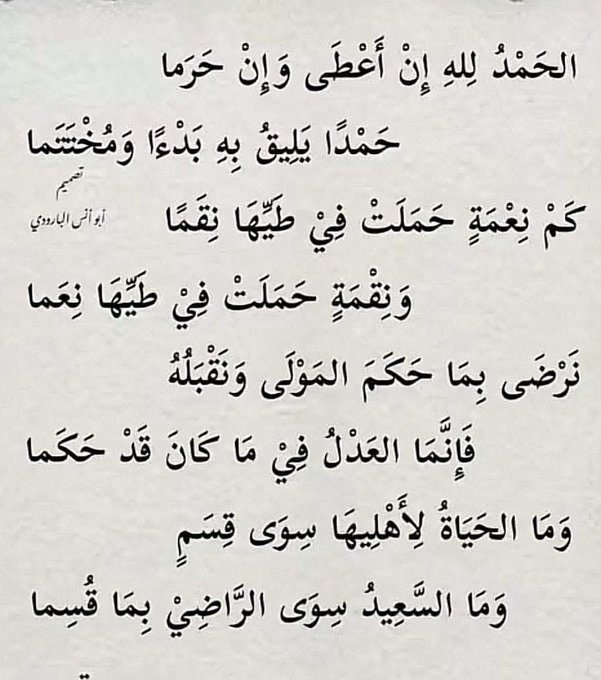 الحَمْدُ لِلهِ إِنْ أَعْطَى وَإِنْ حَرَما
حَمْدًا يَلِيقُ بِهِ بَدْءًا وَمُخْتَتَما
تصميم
كَمْ نِعْمَةٍ حَمَلَتْ فِيْ طَيِّهَا نِقَمًا
أبو أنس البارودي
وَنِقْمَةٍ حَمَلَتْ فِيْ طَيِّهَا نِعَما
نَرْضَى بِمَا حَكَمَ المَوْلَى وَنَقْبَلُهُ
فَإِنَّمَا العَدْلُ فِيْ مَا كَانَ قَدْ حَكَما
وَمَا الحَيَاةُ لِأَهْلِيهَا سِوَى قِسَمٍ
وَمَا السَّعِيدُ سِوَى الرَّاضِيْ بِمَا قُسِما